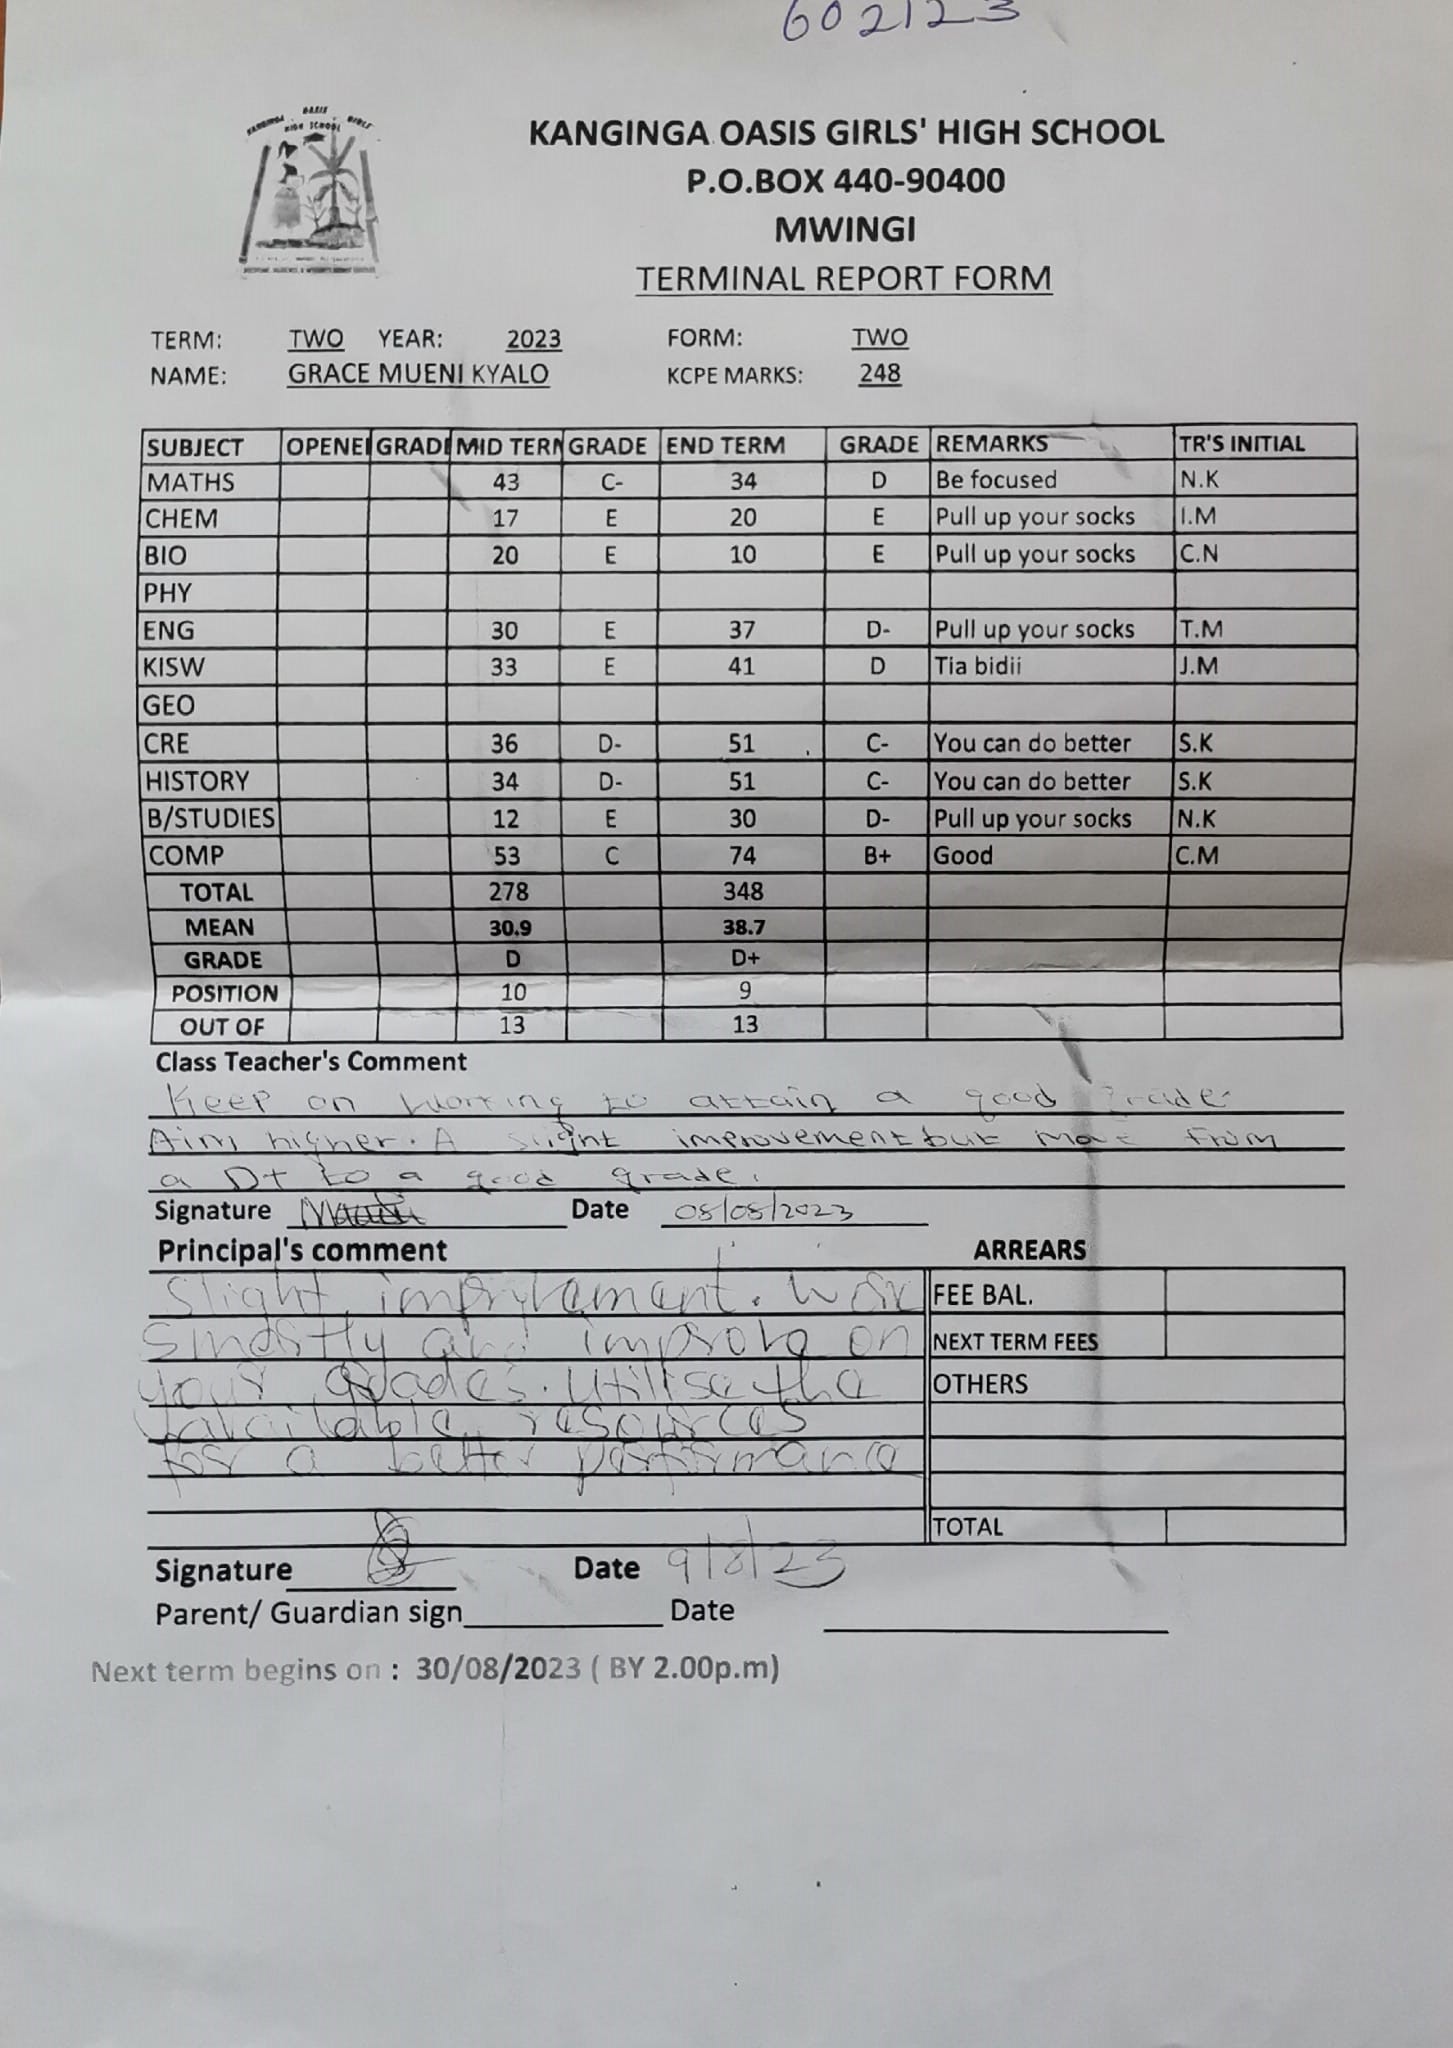 602123
KANGINGA OASIS GIRLS' HIGH SCHOOL
P.O.BOX 440-90400
MWINGI
TERMINAL REPORT FORM
TERM: TWO YEAR: 2023 FORM: TWO
NAME: GRACE MUENI KYALO KCPE MARKS: 248
SUBJECT OPENE GRAD MID TERM GRADE END TERM GRADE REMARKS TR'S INITIAL
MATHS 43 C- 34 D Be focused N.K
CHEM 17 E 20 E Pull up your socks I.M
BIO 20 E 10 E Pull up your socks C.N
PHY
ENG 30 E 37 D- Pull up your socks T.M
KISW 33 E 41 D Tia bidii J.M
GEO
CRE 36 D- 51 C- You can do better S.K
HISTORY 34 D- 51 C- You can do better S.K
B/STUDIES 12 E 30 D- Pull up your socks N.K
COMP 53 C 74 B+ Good C.M
TOTAL 278 348
MEAN 30.9 38.7
GRADE D D+
POSITION 10 9
OUT OF 13 13
Class Teacher's Comment
Keep on working to attain a good grade.
Aim higher. A slight improvement but move from
a D+ to a good grade.
Signature Date 08/08/2023
Principal's comment ARREARS
Slight improvement. Work FEE BAL.
and improve on NEXT TERM FEES
your grades. Utilise the OTHERS
available resources
for a better performance
TOTAL
Signature Date 9/8/23
Parent/ Guardian sign Date
Next term begins on : 30/08/2023 ( BY 2.00p.m)